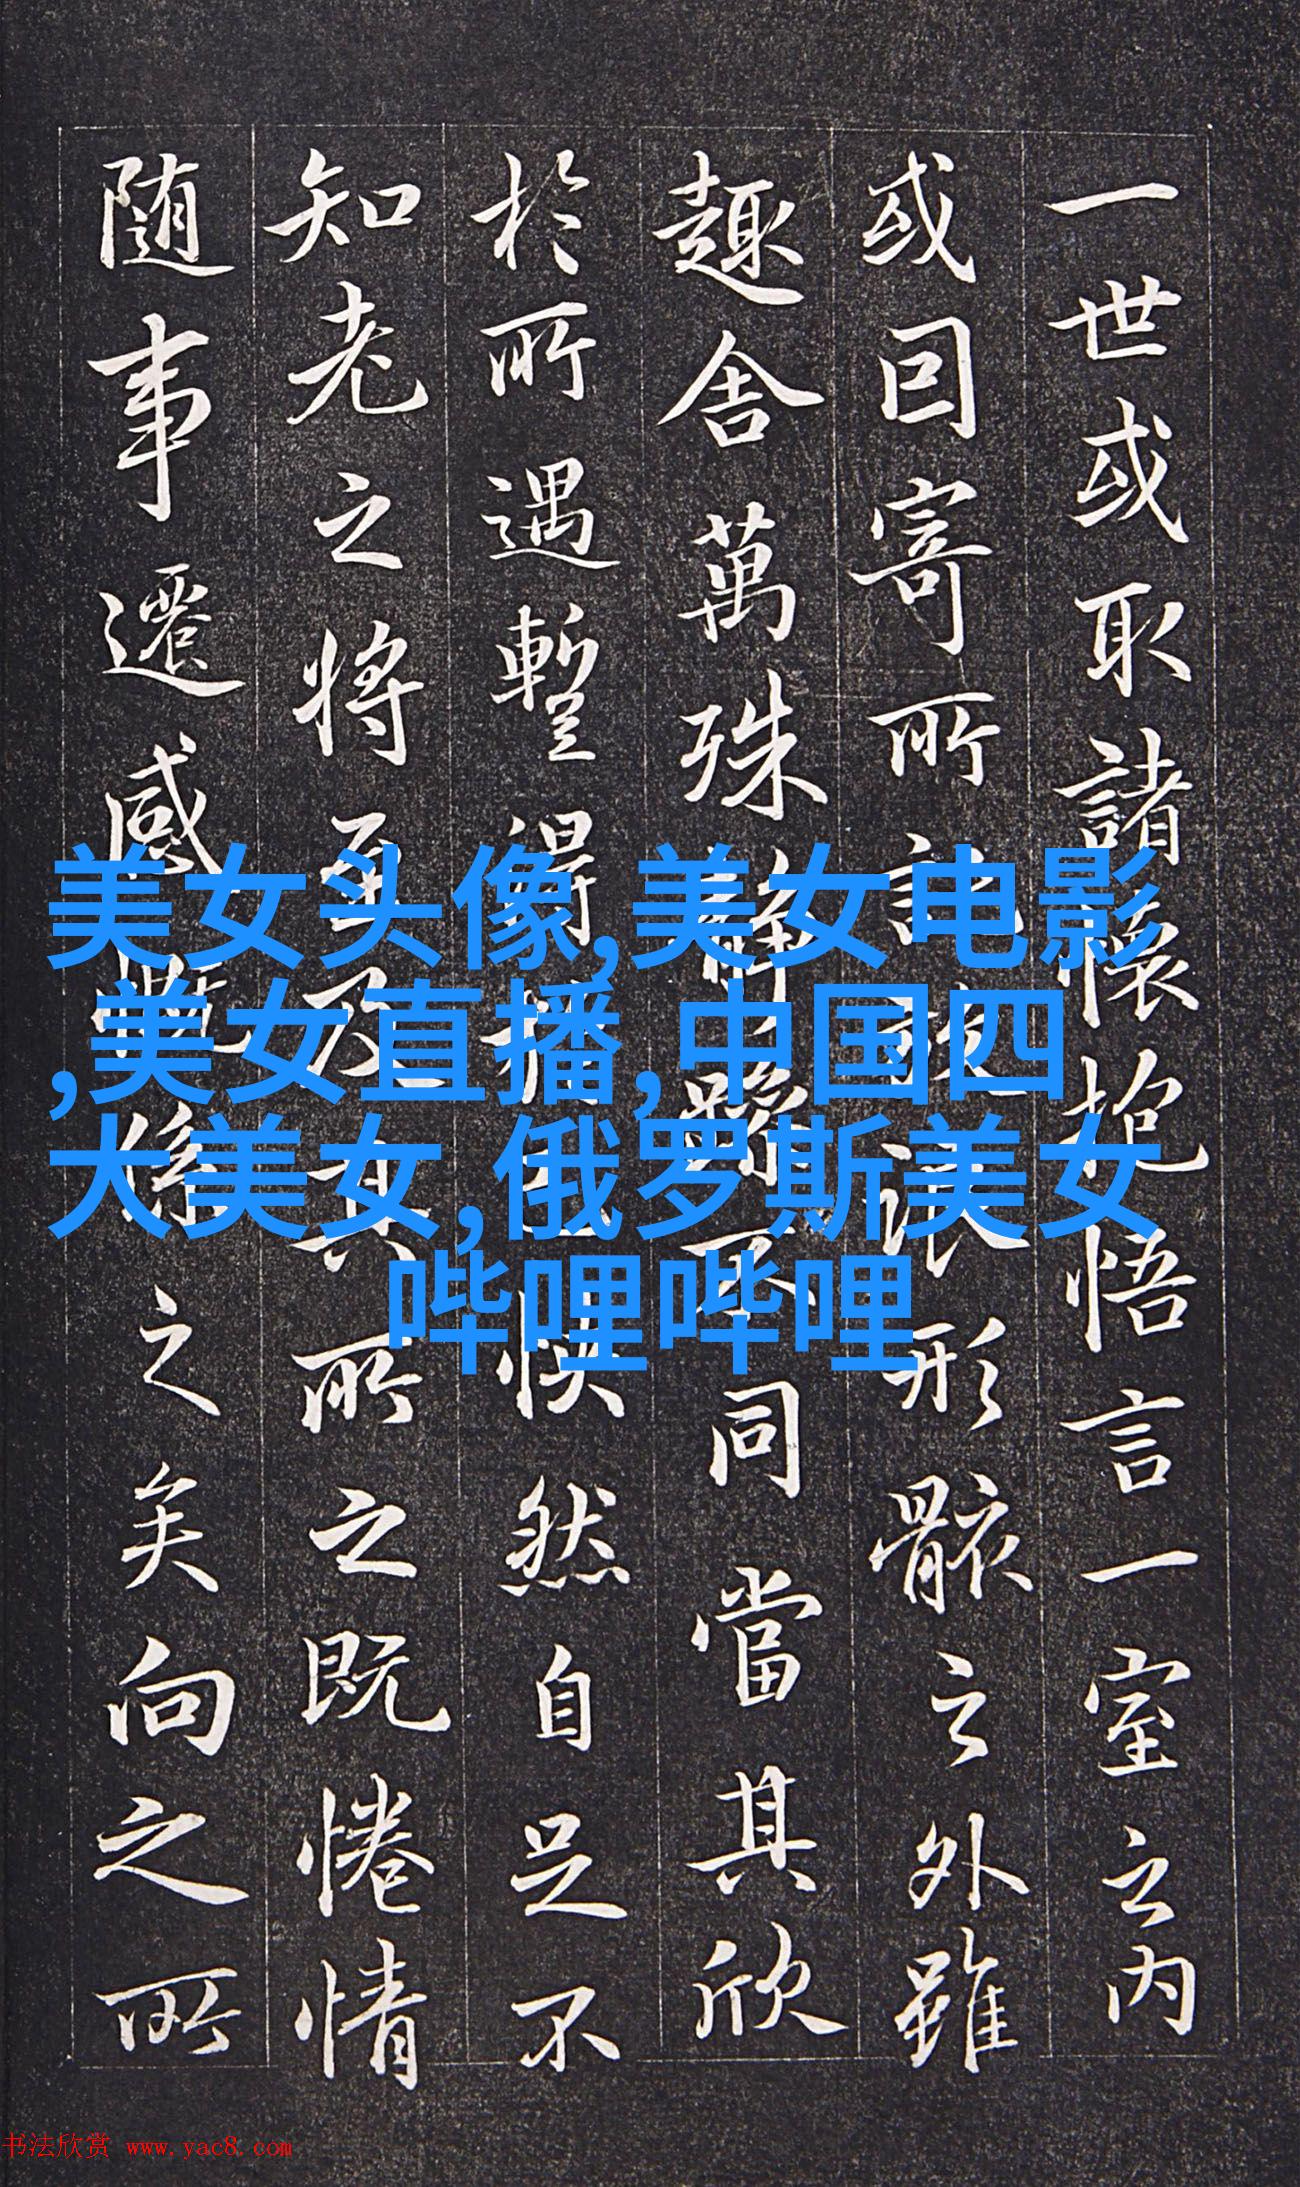 一世或取諸懷抱悟言一室之內
或囙寄所託放浪形骸之外雖
趣舍萬殊靜躁不同當其欣
於所遇暫得於己快然自足不
知老之將至及其所之既惓情
随事遷感慨係之矣向之所
美女头像,美女电影
,美女直播,中国四
大美女,俄罗斯美女
哔哩哔哩
书法欣赏 www.yac8.com